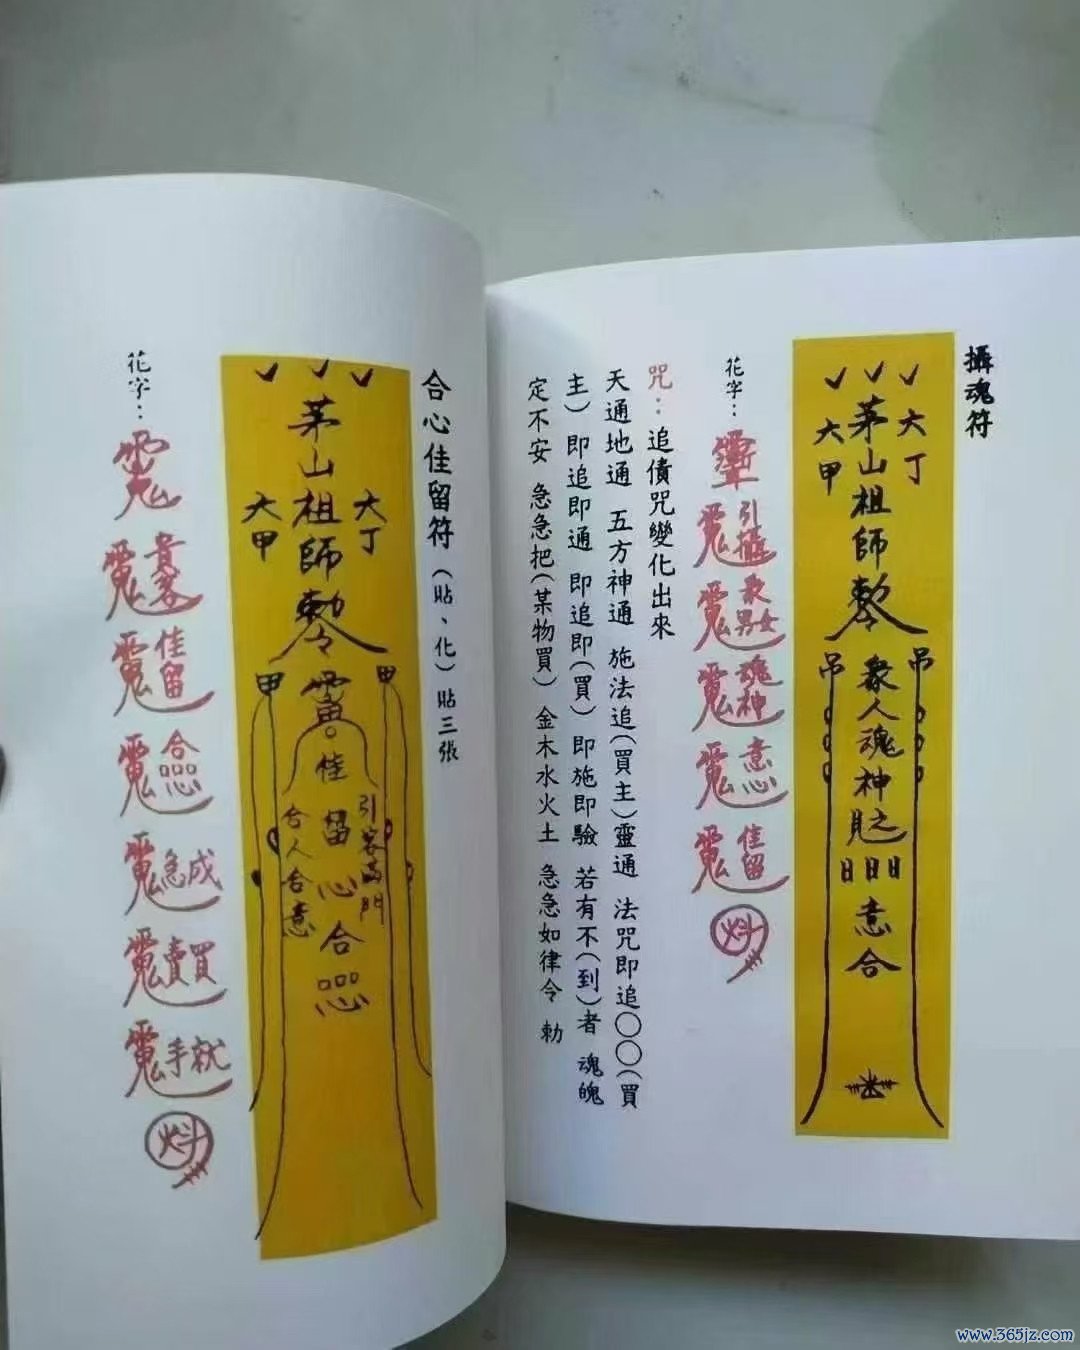 攝魂符
大丁
茅山祖師勅令
大甲
吊
吊
衆人魂神
日日日意合
花字：
引攝
衆男女
魂神
意心
佳留
咒：追債咒變化出來
天通地通 五方神通 施法追(買主)靈通 法咒即追〇〇(買
主) 即追即通 即追即(買) 即施即驗 若有不(到)者 魂魄
定不安 急急把(某物買) 金木水火土 急急如律令 勅
合心佳留符(貼、化)貼三張
大丁
茅山祖師勅令
大甲
甲
甲
佳留心合
合人合意
花字：
佳留
急成
賣買
手就
www.365jz.com